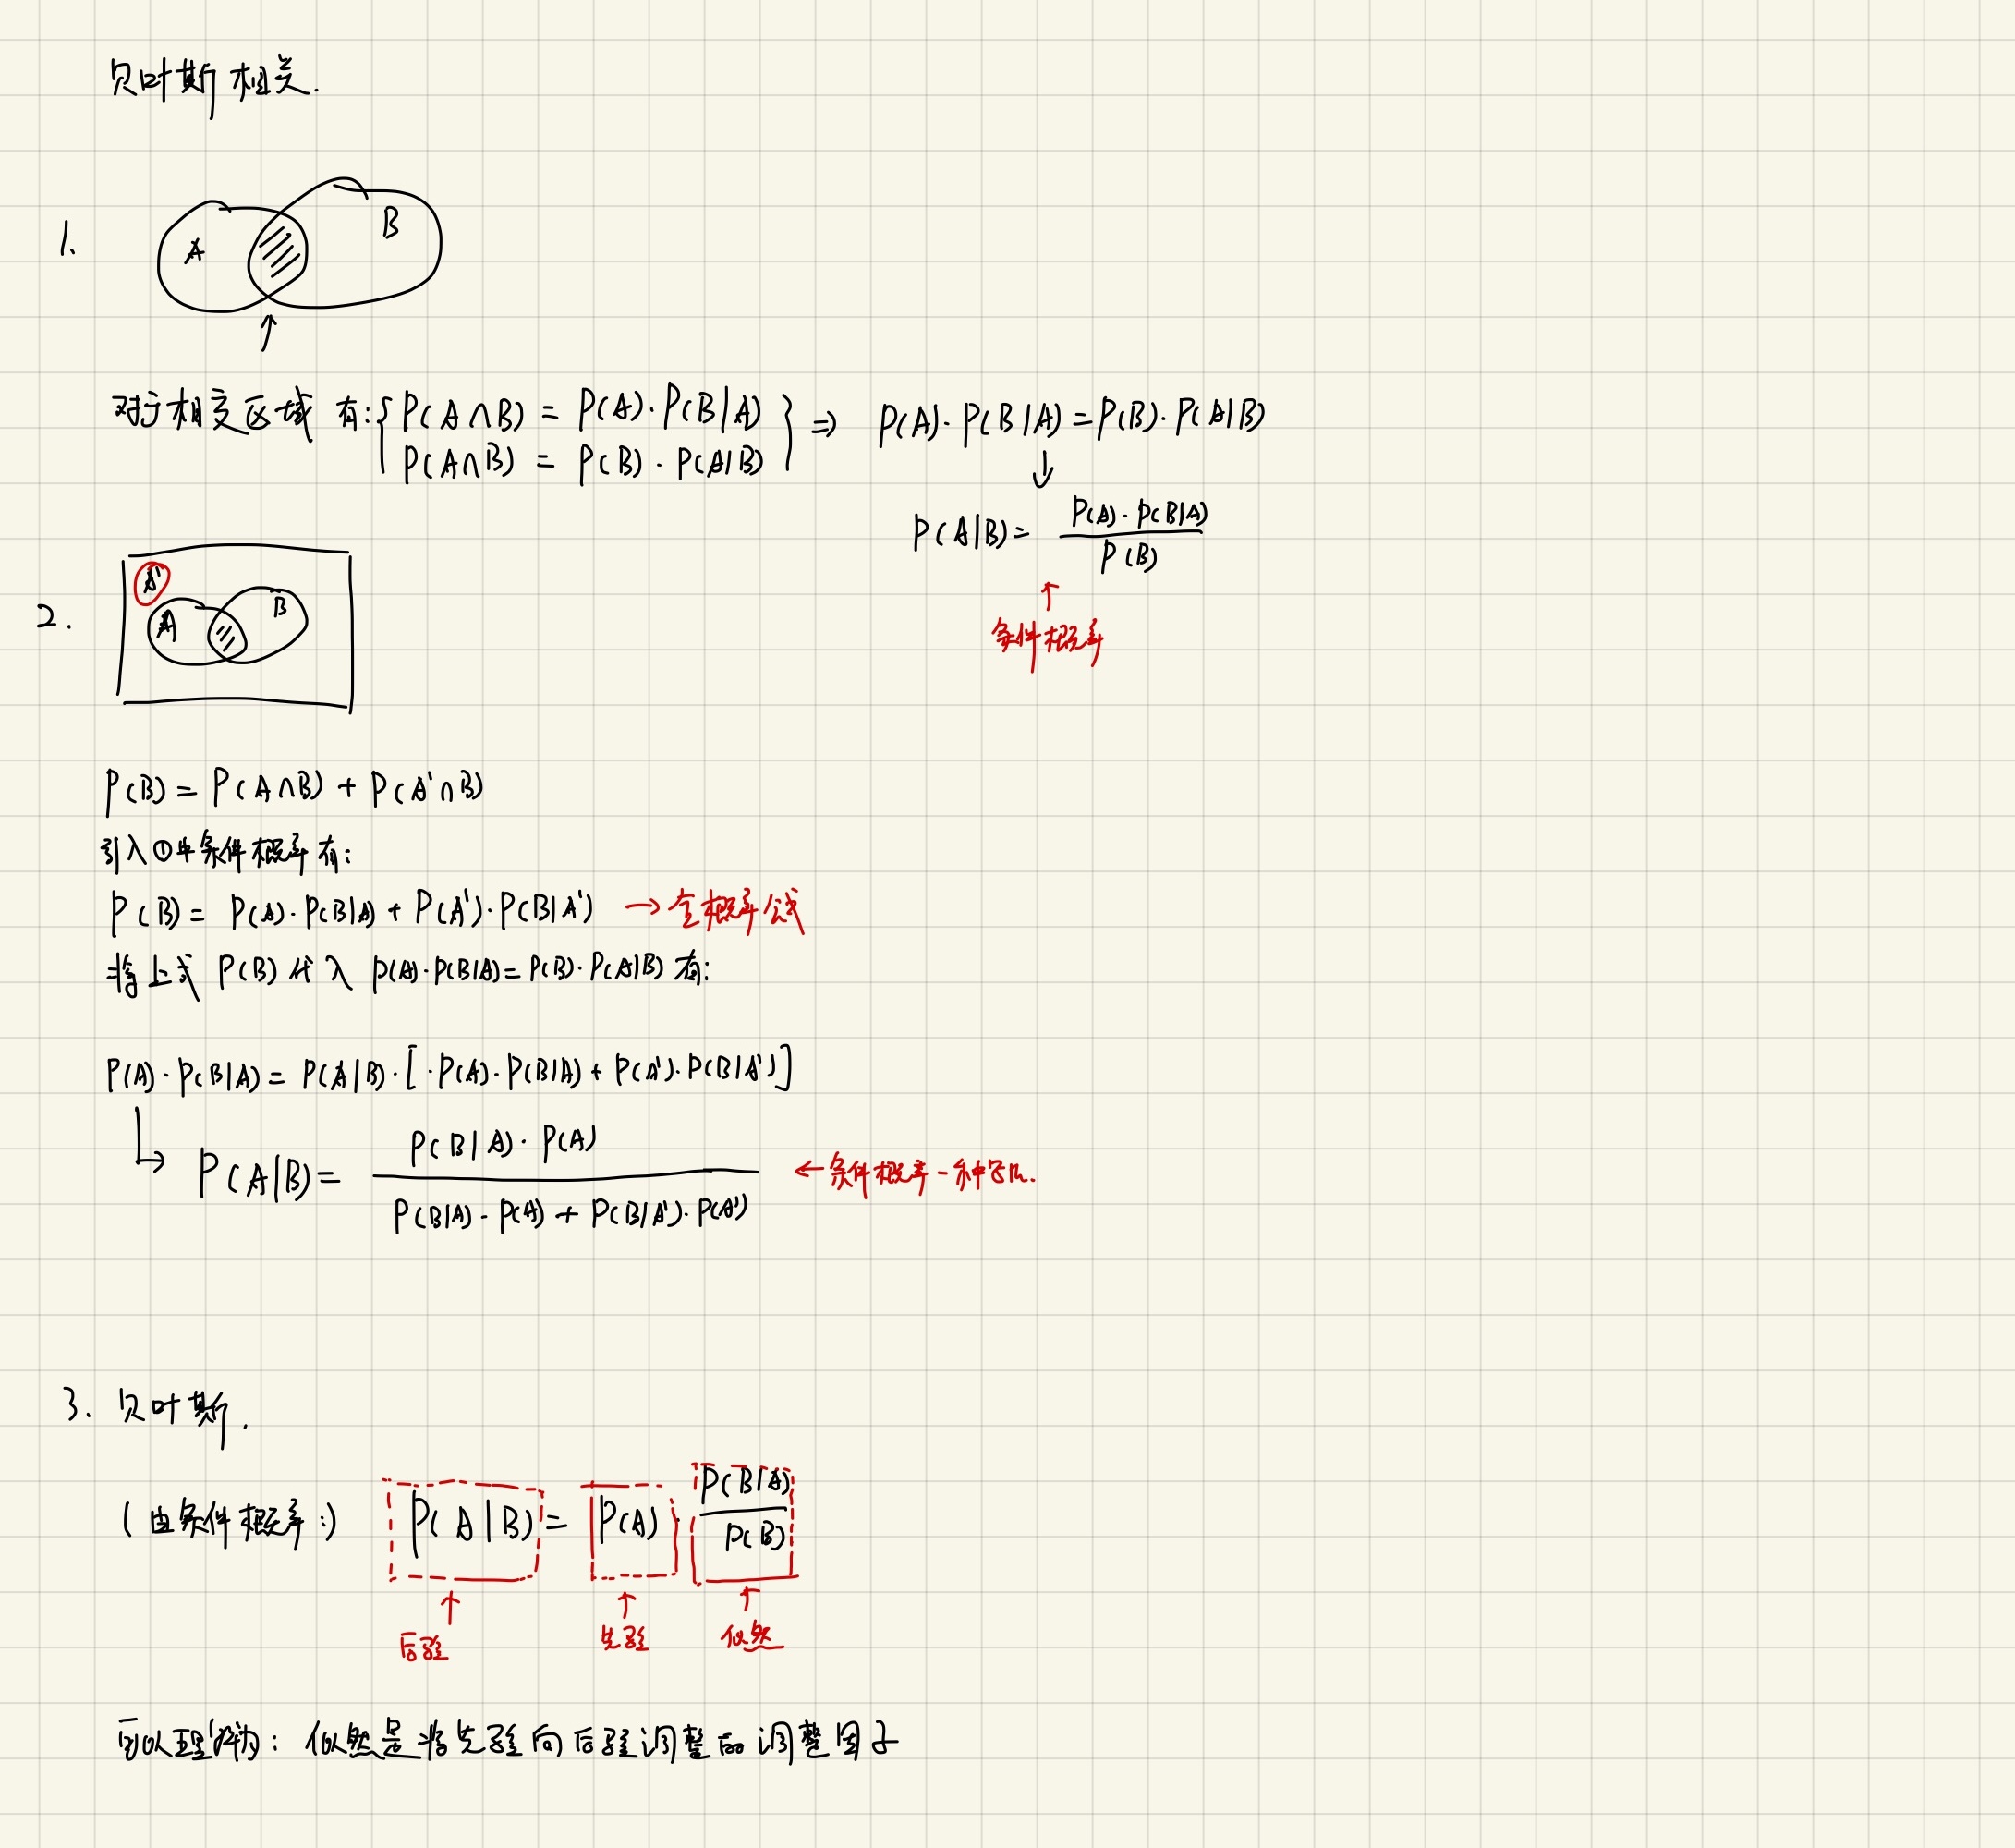 贝叶斯相关.
1.
A B
对于相交区域 有:{ P(A∩B) = P(A)·P(B|A) } ⇒ P(A)·P(B|A) = P(B)·P(A|B)
P(A∩B) = P(B)·P(A|B)
↓
P(A|B) = P(A)·P(B|A) / P(B)
↑
条件概率
2.
A' A B
P(B) = P(A∩B) + P(A'∩B)
引入①中条件概率有:
P(B) = P(A)·P(B|A) + P(A')·P(B|A') → 全概率公式
将上式 P(B) 代入 P(A)·P(B|A) = P(B)·P(A|B) 有:
P(A)·P(B|A) = P(A|B)·[·P(A)·P(B|A) + P(A')·P(B|A')]
P(A|B) = P(B|A)·P(A) / P(B|A)·P(A) + P(B|A')·P(A') ← 条件概率一种写法.
3. 贝叶斯.
(由条件概率:) P(A|B) = P(A)·P(B|A) / P(B)
↑ ↑ ↑
后验 先验 似然
可以理解为: 似然是将先验向后验调整的调整因子